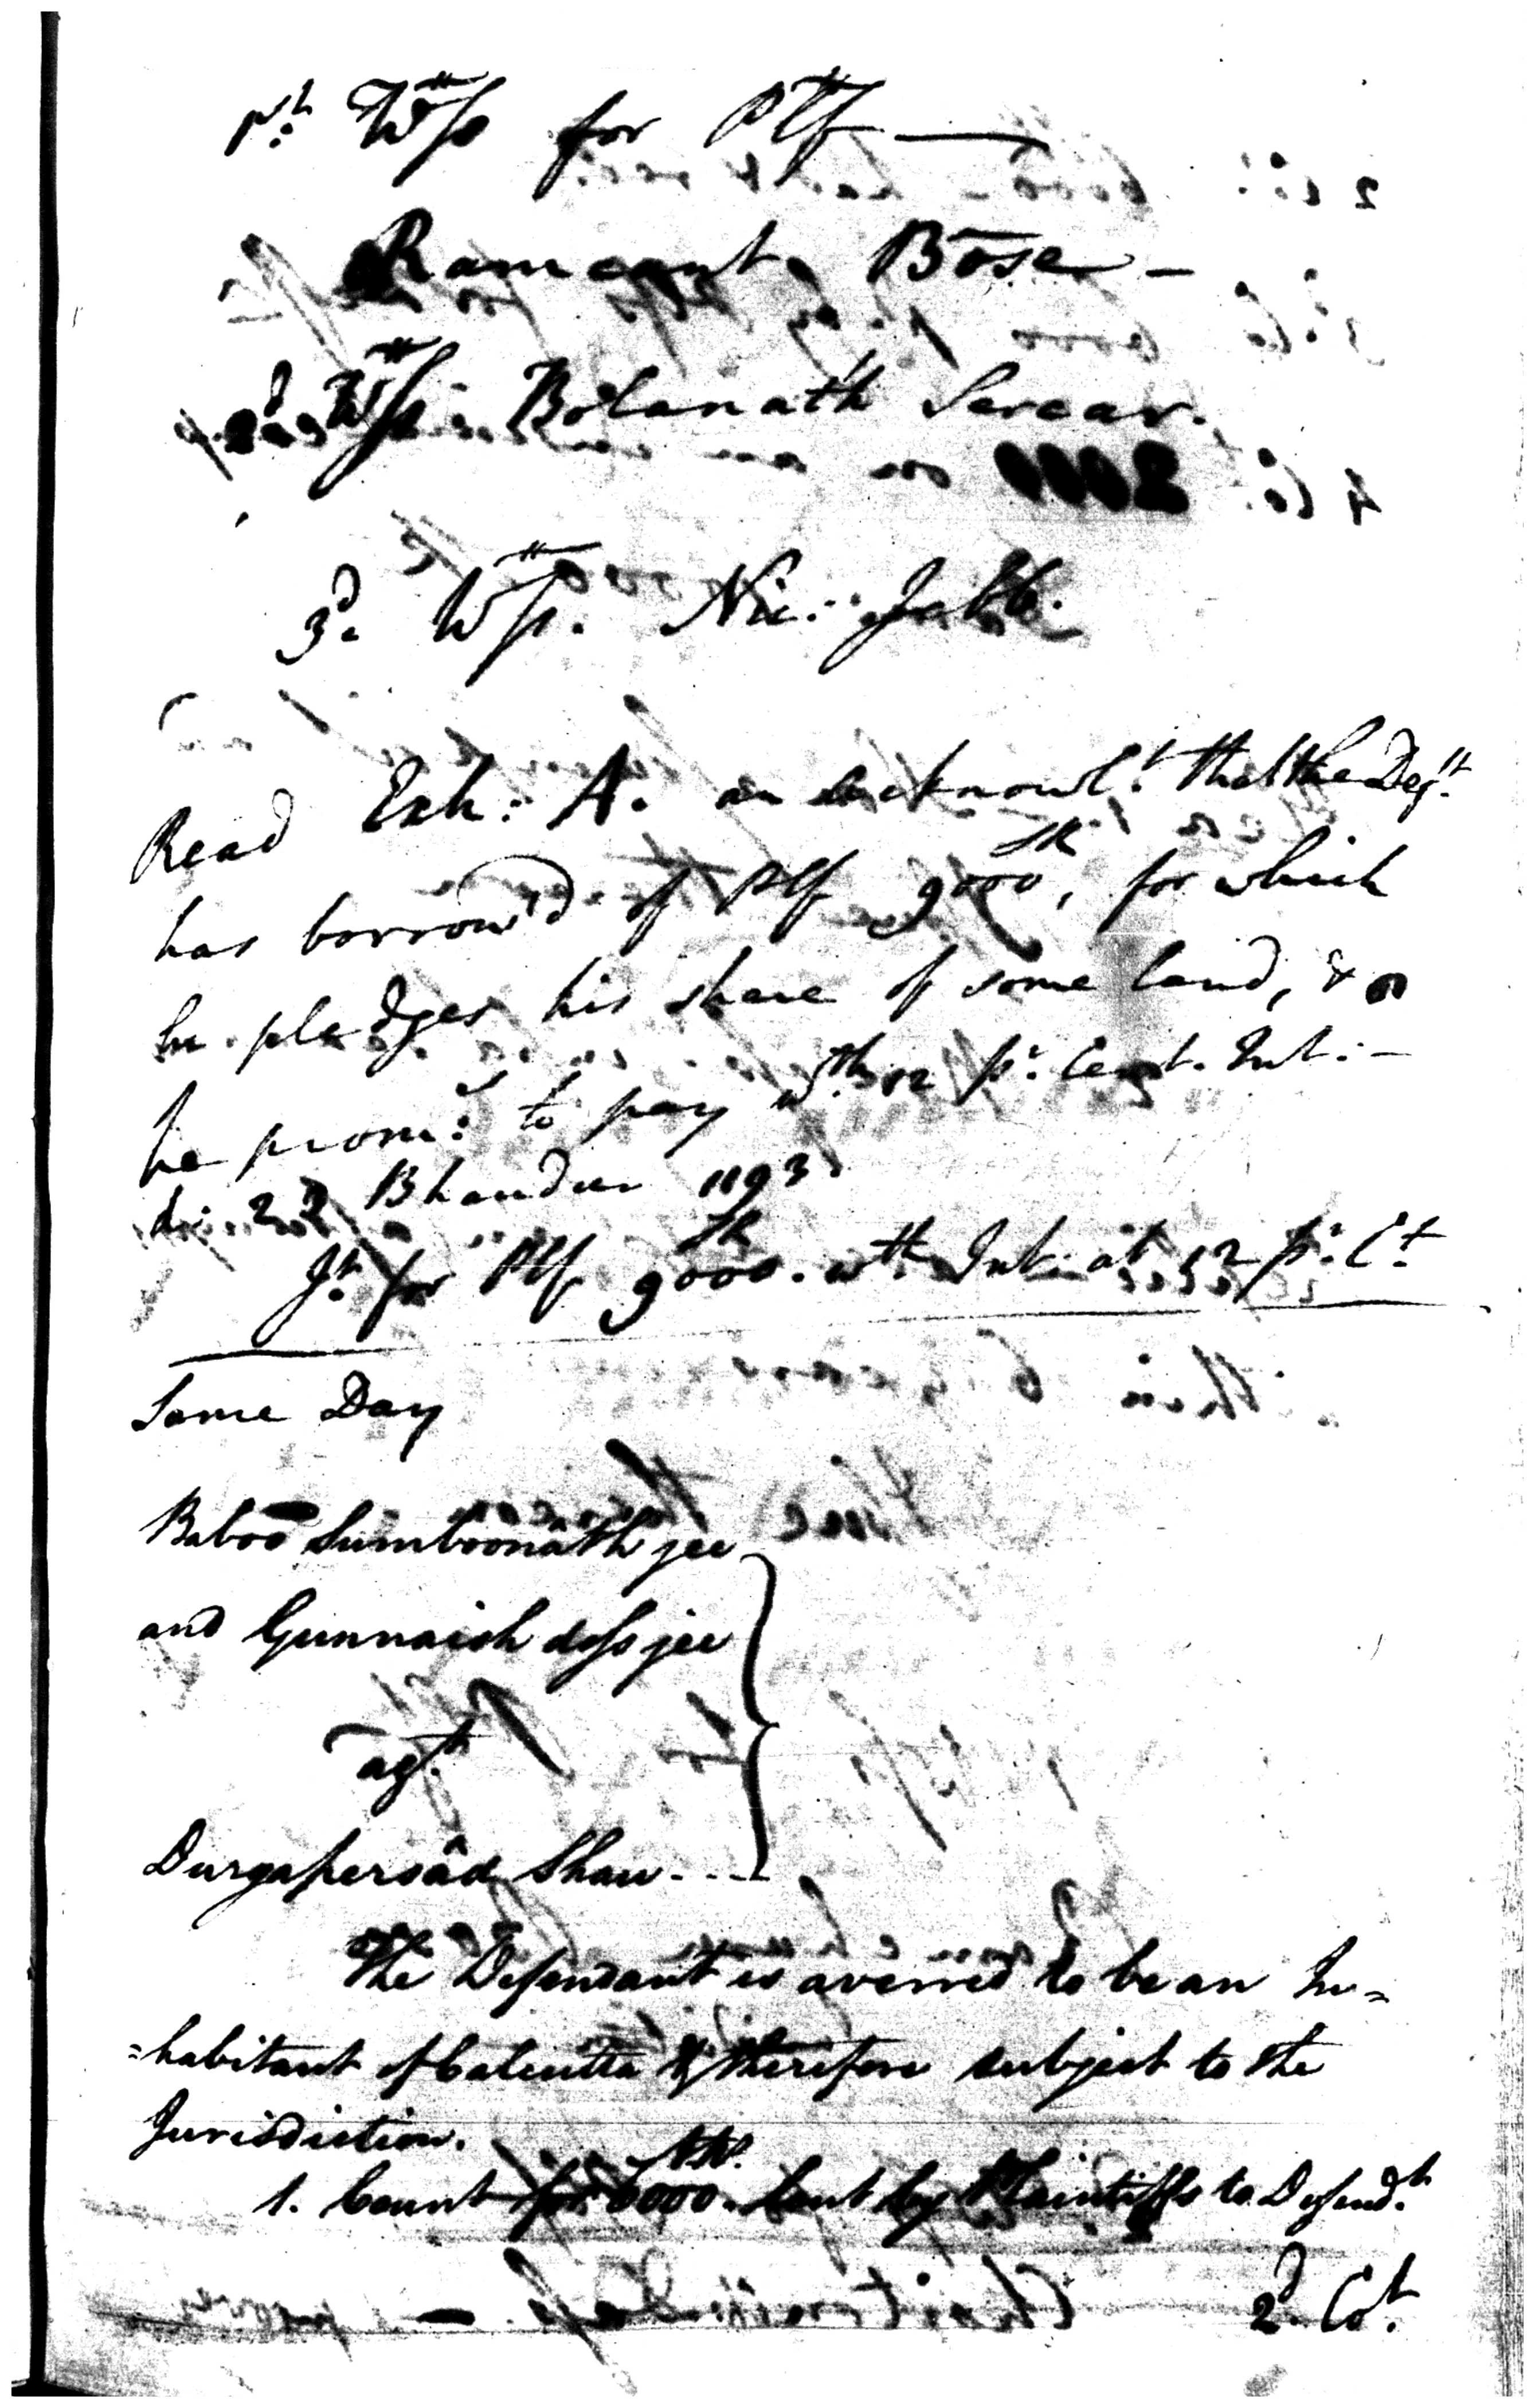 1st. Wss for Ptf —
Ramcaunt Bose —
2d. Wss. Bolanath Sercar.
3d. Wss. Nic: Jabb.
Read Exh: A. an acknowlt. that the Deft.
has borrow'd of Plf 9000 SR, for which
he pledges his share of some land, &
he prom:s to pay wth 12 pr. Cent. Int: —
d: 22 Bhauder 1193
Jt. for Plf 9000 SR. wth Int: at 12 pr. Ct
Same Day
Baboo Sumboonâth jee
and Gunnaish doss jee
agt.
Durgapersâd Shaw - - -
The Defendant is averred to be an In=
=habitant of Calcutta & therefore subject to the
Jurisdiction.
1. Count for 6000 lent by Plaintiffs to Defendt.
2d. Cot.